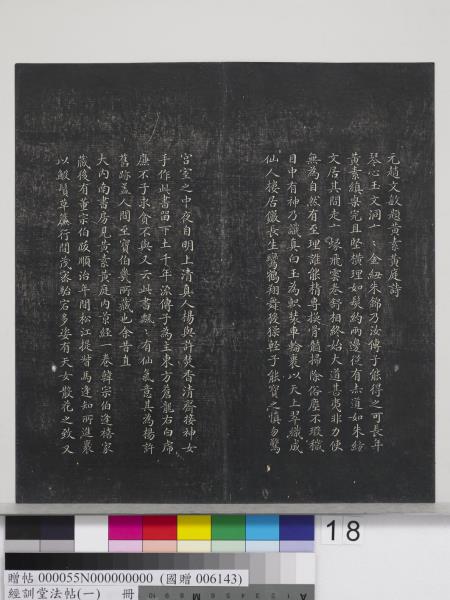 元趙文敏題黃素黃庭詩
琴心玉文洞十、金紐朱錦乃汝傳子能得之可長年
黃素縝栗完且堅橫理如髮約兩邊從有赤道如朱絲
文居其間走十緣飛雲卷舒相終始大道甚夷非力使
無為自然有至理誰能精專換骨髓掃除俗塵不瑕穢
目中有神乃識真白玉為軹裝車輪裹以天上翠織成
仙人樓居鐵長生鸞鶴翔舞
子能寶之慎勿驚
宮室之中夜自明上清真人楊與許焚香清齋接神女
手作此書留下土千年流傳子為主東方蒼龍右白席
廉不子求貪不與又云此書飄、有仙氣意其為楊許
舊跡蓋人間至寶伯幾所藏也余昔直
大內南書房見黃素黃庭內景經一卷韓宗伯逢禧家
藏後有董宗伯跋順治年間松江提督馬逢知所進裹
以
行間茂密
宕多姿有天女散花之致又
18
贈帖 000055N000000000 (國贈 006143)
經訓堂法帖(一) 冊